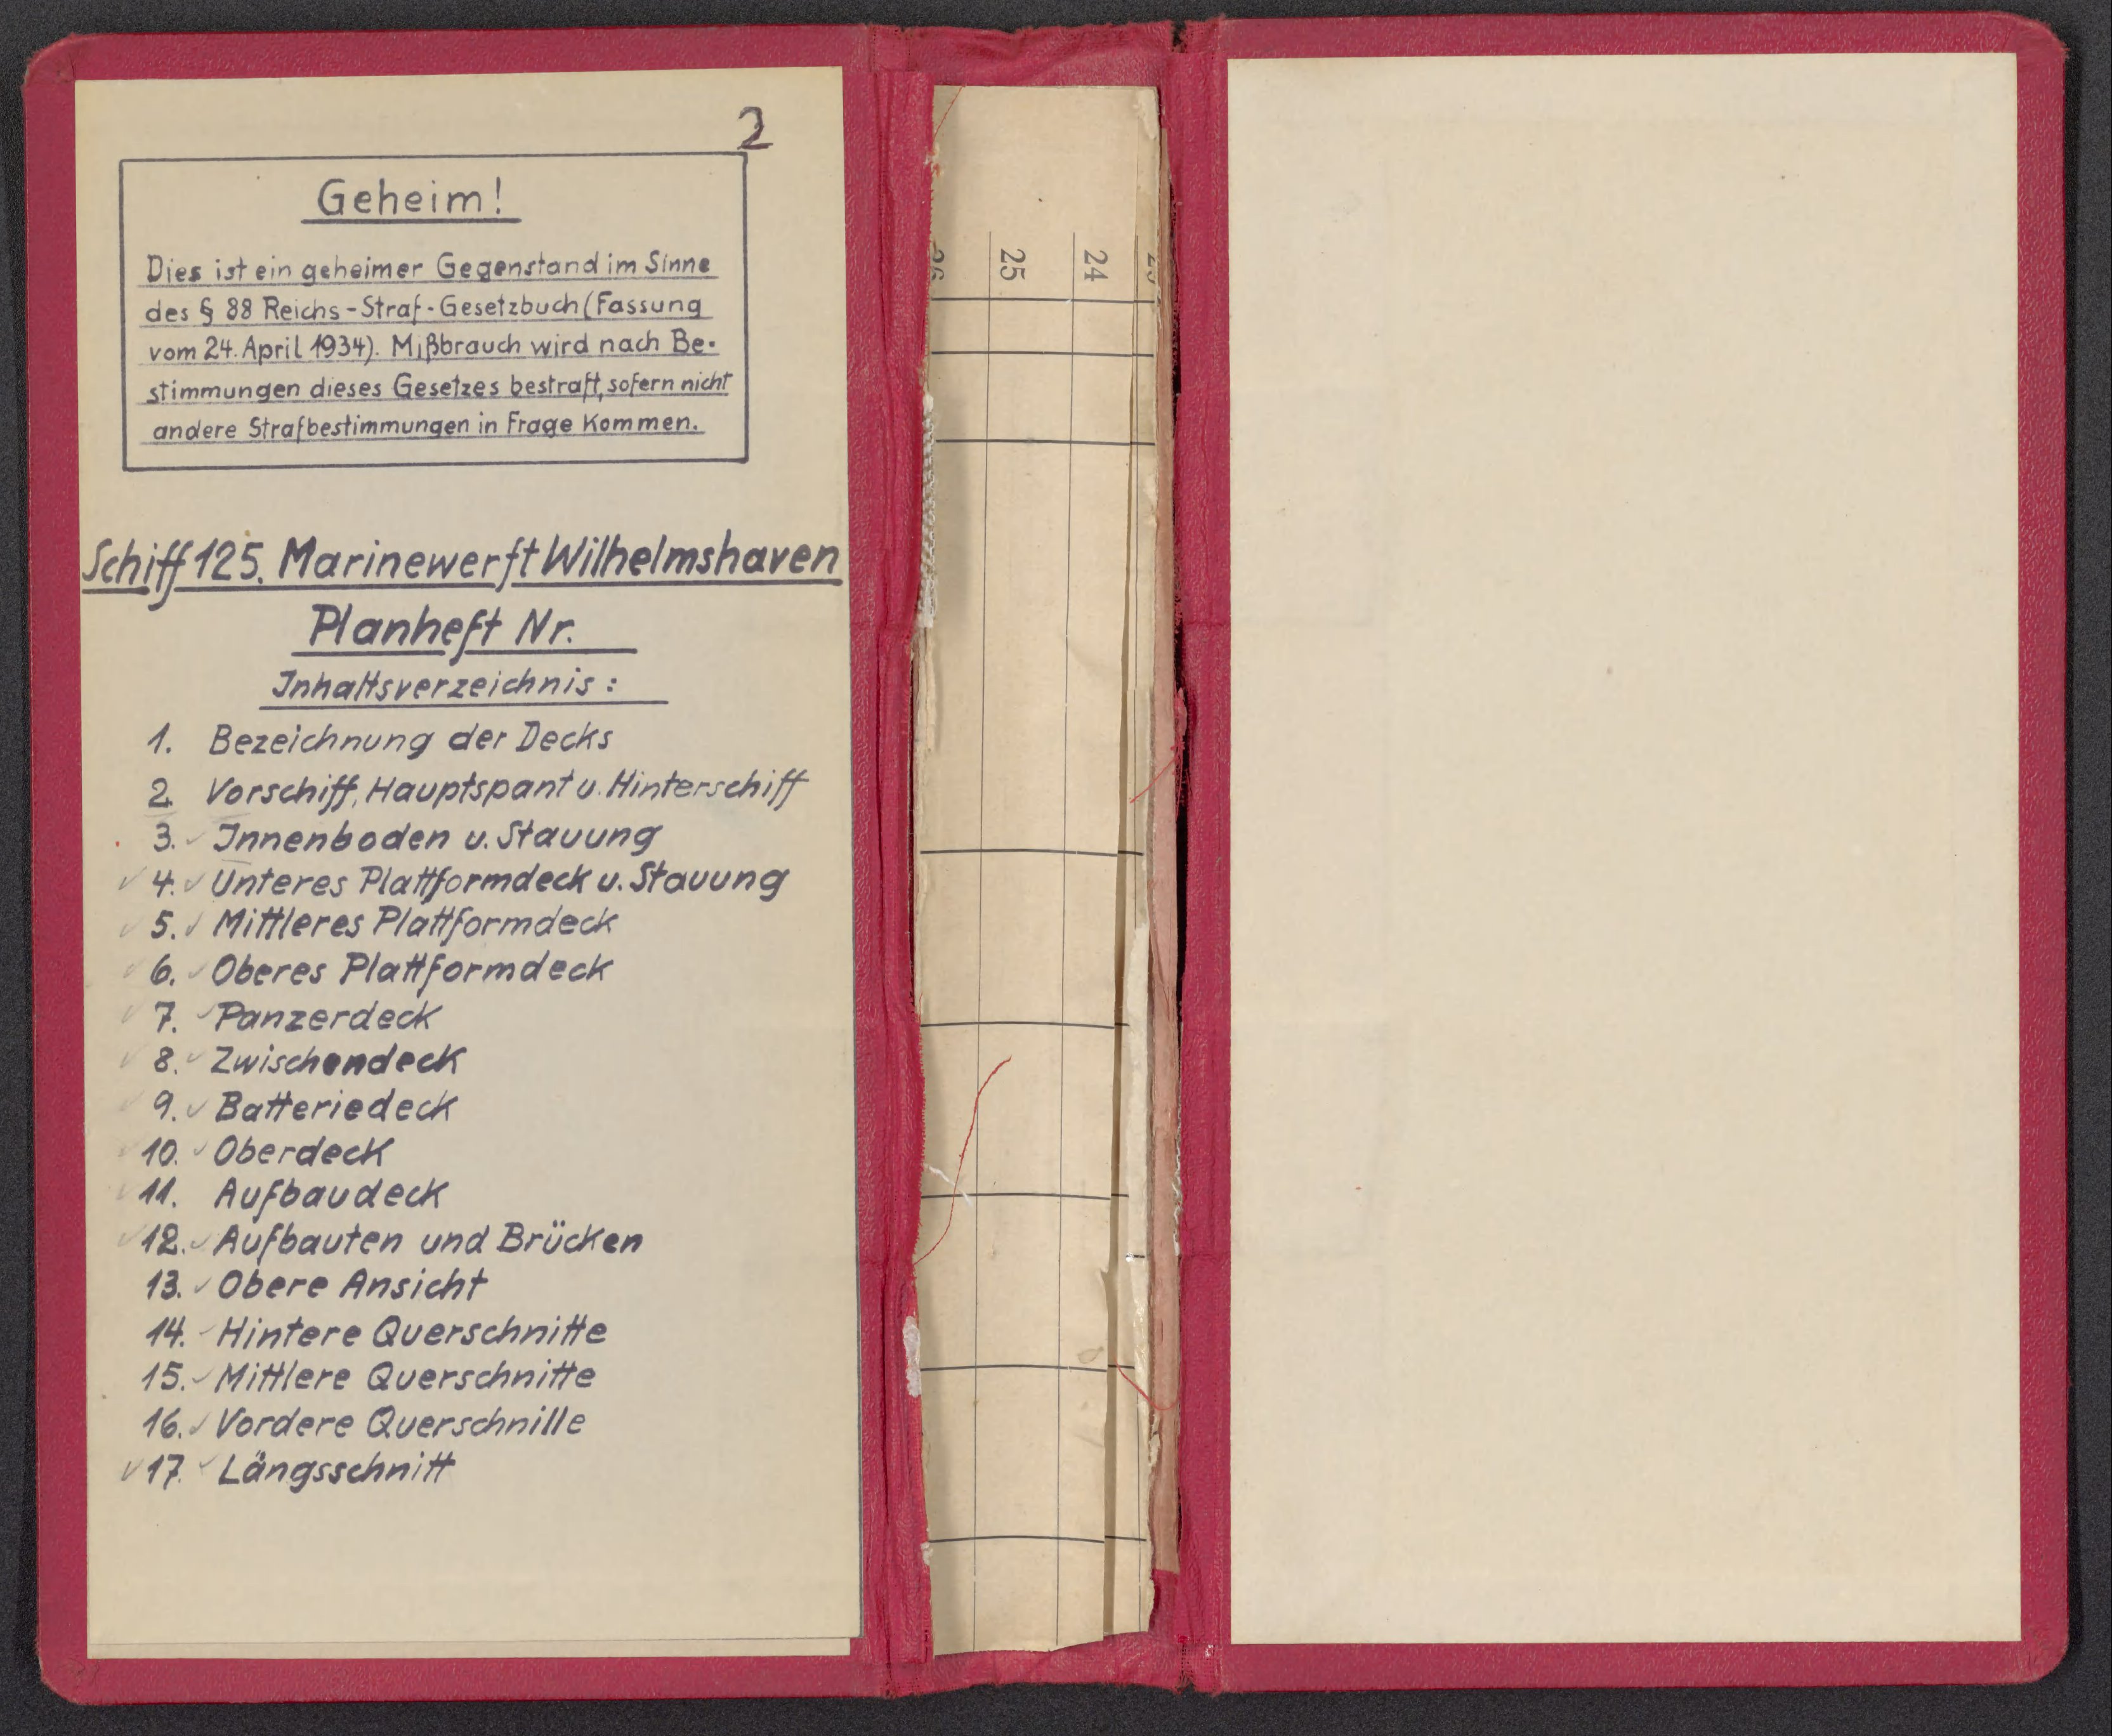 2
Geheim!
Dies ist ein geheimer Gegenstand im Sinne
des § 88 Reichs-Straf-Gesetzbuch (Fassung
vom 24. April 1934). Mißbrauch wird nach Be-
stimmungen dieses Gesetzes bestraft, sofern nicht
andere Strafbestimmungen in Frage Kommen.
Schiff 125. Marinewerft Wilhelmshaven
Planheft Nr.
Inhaltsverzeichnis:
1. Bezeichnung der Decks
2. Vorschiff, Hauptspant u. Hinterschiff
3. Innenboden u. Stauung
4. Unteres Plattformdeck u. Stauung
5. Mittleres Plattformdeck
6. Oberes Plattformdeck
7. Panzerdeck
8. Zwischendeck
9. Batteriedeck
10. Oberdeck
11. Aufbaudeck
12. Aufbauten und Brücken
13. Obere Ansicht
14. Hintere Querschnitte
15. Mittlere Querschnitte
16. Vordere Querschnitte
17. Längsschnitt
25
24